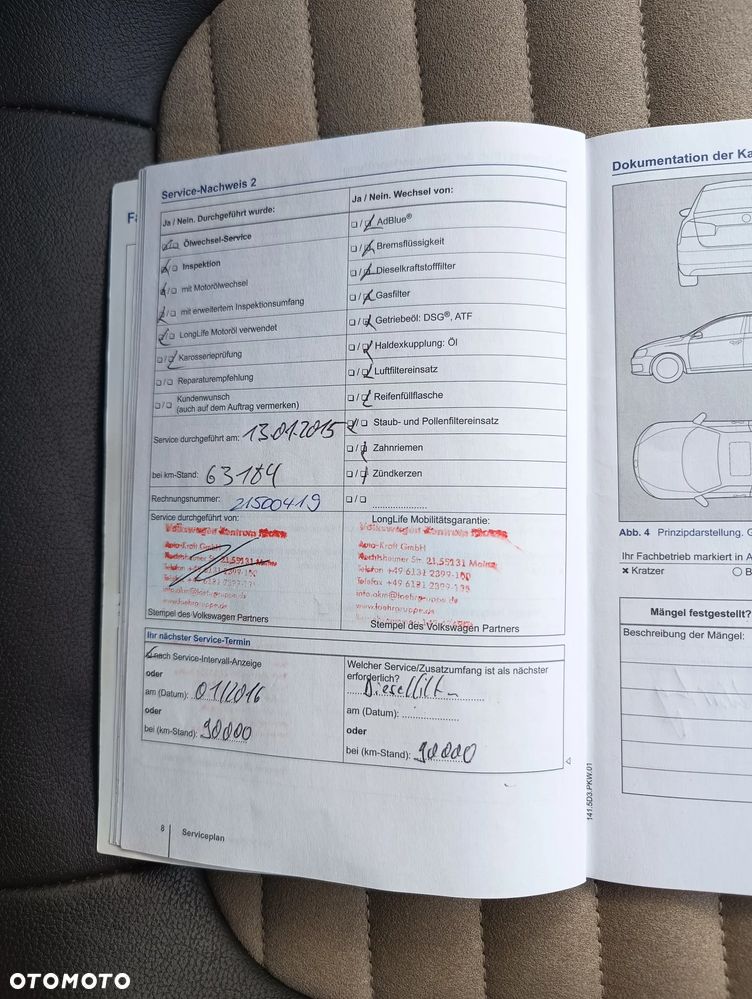 Service-Nachweis 2
Ja / Nein. Durchgeführt wurde:
Ja / Nein. Wechsel von:
Ölwechsel-Service
Inspektion
mit Motorölwechsel
mit erweitertem Inspektionsumfang
LongLife Motoröl verwendet
Karosserieprüfung
Reparaturempfehlung
Kundenwunsch
(auch auf dem Auftrag vermerken)
AdBlue®
Bremsflüssigkeit
Dieselkraftstofffilter
Gasfilter
Getriebeöl: DSG®, ATF
Haldexkupplung: Öl
Luftfiltereinsatz
Reifenfüllflasche
Staub- und Pollenfiltereinsatz
Zahnriemen
Zündkerzen
Service durchgeführt am: 13.01.2015
bei km-Stand: 63184
Rechnungsnummer: 21500419
Service durchgeführt von:
Volkswagen Zentrum
Auto-Kraft GmbH
21, 55131 Mainz
Telefon +49 6131 2399-100
Stempel des Volkswagen Partners
LongLife Mobilitätsgarantie:
Volkswagen Zentrum
Auto-Kraft GmbH
21, 55131 Mainz
Telefon +49 6131 2399-100
Telefax +49 6131 2399-135
Stempel des Volkswagen Partners
Ihr nächster Service-Termin
nach Service-Intervall-Anzeige
oder
am (Datum): 01/2016
oder
bei (km-Stand): 90000
Welcher Service/Zusatzumfang ist als nächster
erforderlich?
Dieselfilter
am (Datum):
oder
bei (km-Stand): 90000
8
Serviceplan
141.5D3.PKW.01
Dokumentation der Ka
Abb. 4 Prinzipdarstellung. G
Ihr Fachbetrieb markiert in A
× Kratzer
○ B
Mängel festgestellt?
Beschreibung der Mängel:
OTOMOTO